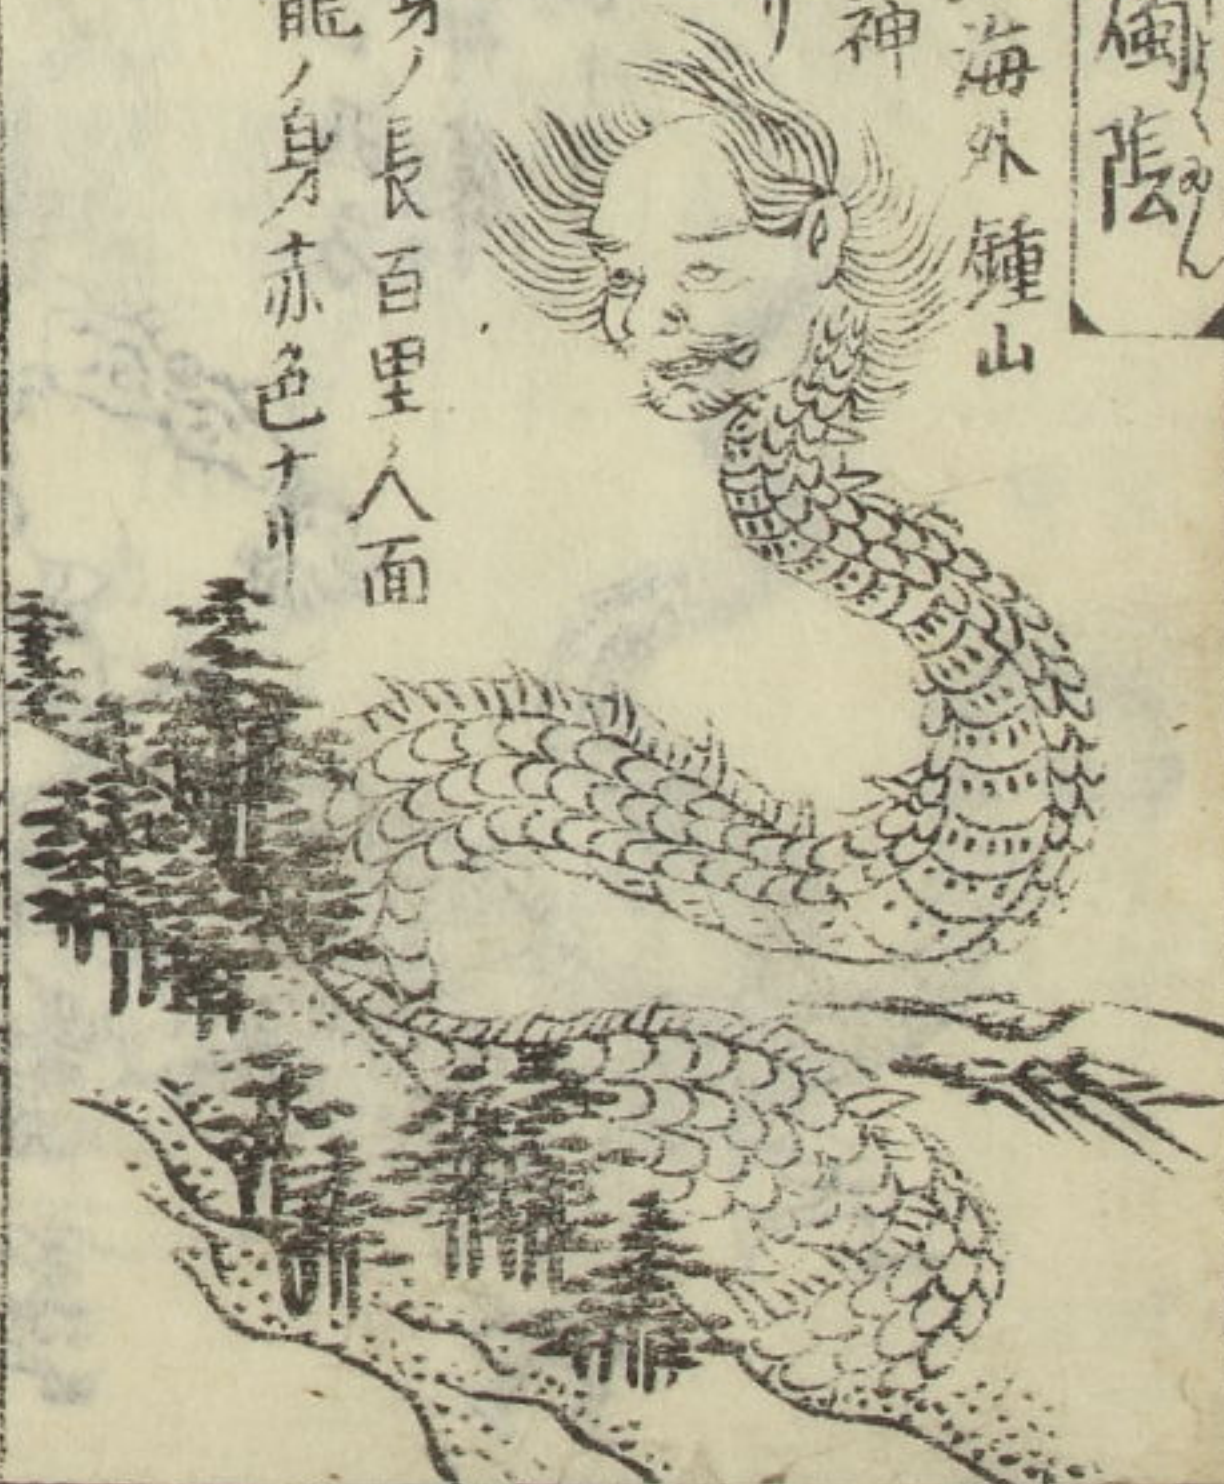 燭陰
しょくいん
海外鍾山
神
リ
身ノ長百里人面
龍ノ身赤色ナリ